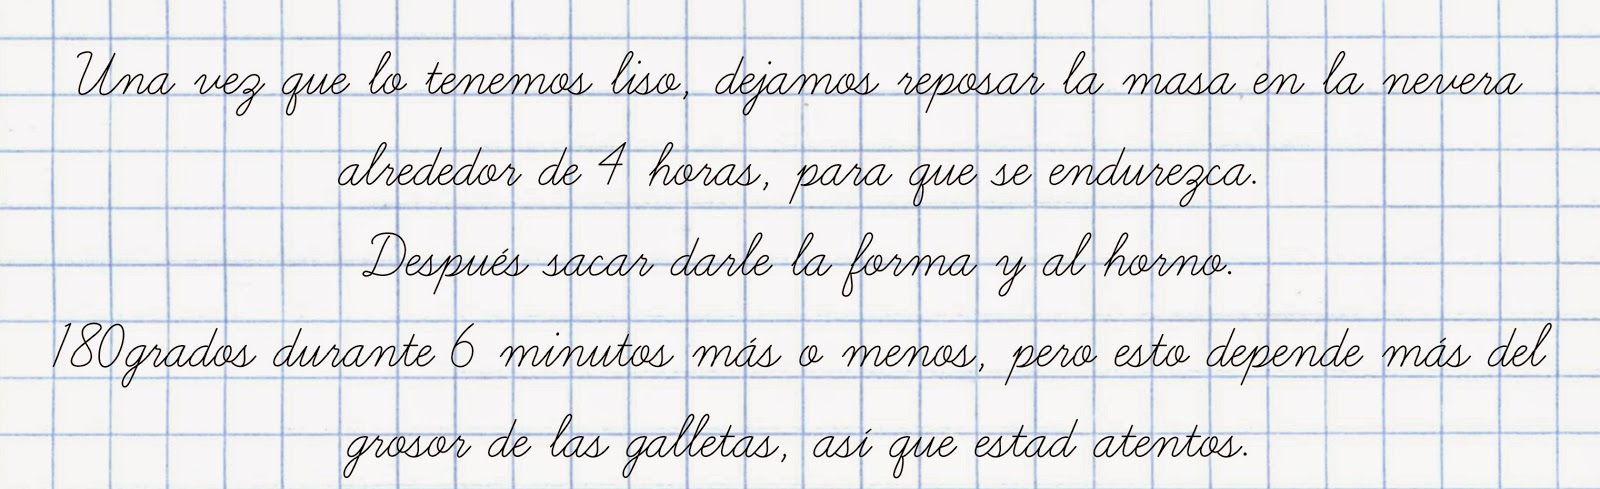 Una vez que lo tenemos liso, dejamos reposar la masa en la nevera
alrededor de 4 horas, para que se endurezca.
Después sacar darle la forma y al horno.
180grados durante 6 minutos más o menos, pero esto depende más del
grosor de las galletas, así que estad atentos.